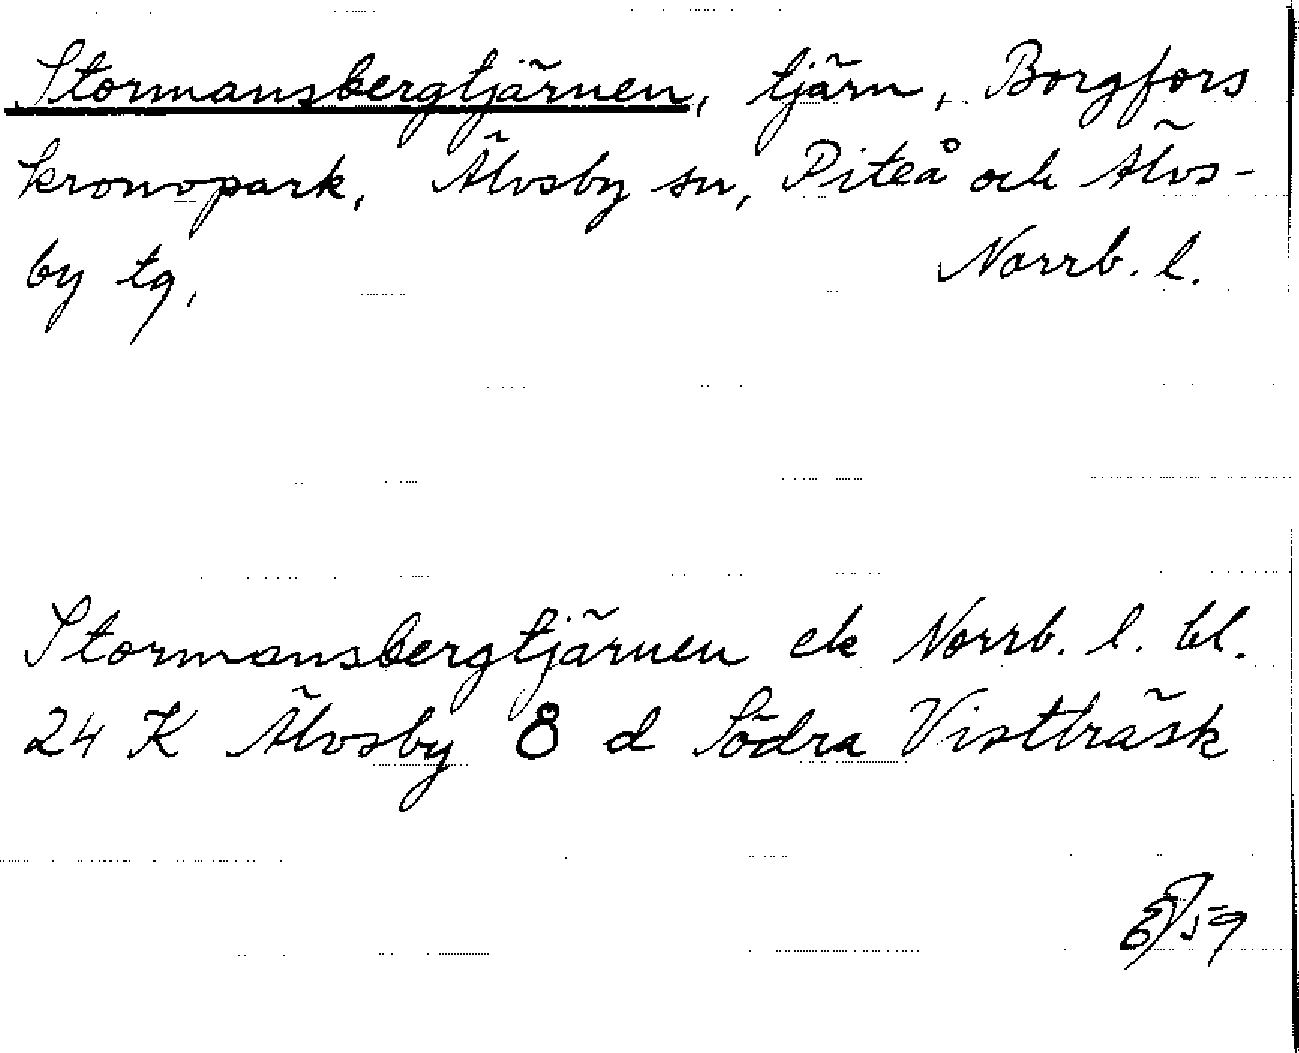 Stormansbergtjärnen, tjärn, Borgfors
kronopark, Älvsby sn, Piteå och Älvs-
by tg, Norrb. l.
Stormansbergtjärnen ek Norrb. l. bl.
24 K Älvsby 8 d Södra Vistträsk
59